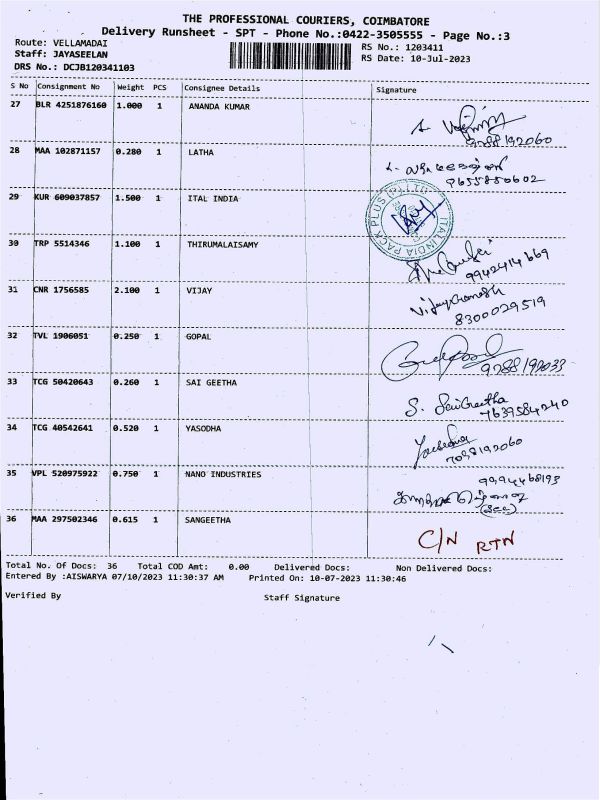 THE PROFESSIONAL COURIERS, COIMBATORE
Delivery Runsheet - SPT - Phone No.:0422-3505555 - Page No.:3
Route: VELLAMADAI
Staff: JAYASEELAN
DRS No.: DCJB120341103
RS No.: 1203411
RS Date: 10-Jul-2023
S No Consignment No Weight PCS Consignee Details Signature
27 BLR 4251876160 1.000 1 ANANDA KUMAR
28 MAA 102871157 0.280 1 LATHA
9655850602
29 KUR 609037857 1.500 1 ITAL INDIA
ITAL INDIA PACK PLUS (P) LTD
30 TRP 5514346 1.100 1 THIRUMALAISAMY
9942414669
31 CNR 1756585 2.100 1 VIJAY
8300029519
32 TVL 1906051 0.250 1 GOPAL
9288192033
33 TCG 50420643 0.260 1 SAI GEETHA S. SaiGeetha
7639584240
34 TCG 40542641 0.520 1 YASODHA Yasodha
35 VPL 520975922 0.750 1 NANO INDUSTRIES 9994468193
36 MAA 297502346 0.615 1 SANGEETHA C/N RTN
Total No. Of Docs: 36 Total COD Amt: 0.00 Delivered Docs: Non Delivered Docs:
Entered By :AISWARYA 07/10/2023 11:30:37 AM Printed On: 10-07-2023 11:30:46
Verified By Staff Signature